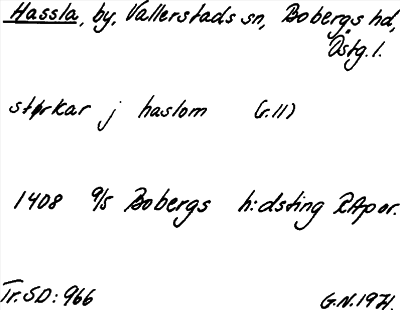 Hassla, by, Vallerstads sn, Bobergs hd,
Östg.l.
størkar j haslom (r.11)
1408 9/5 Bobergs h:dsting RApor.
Tr.SD: 966
G.N.1971.